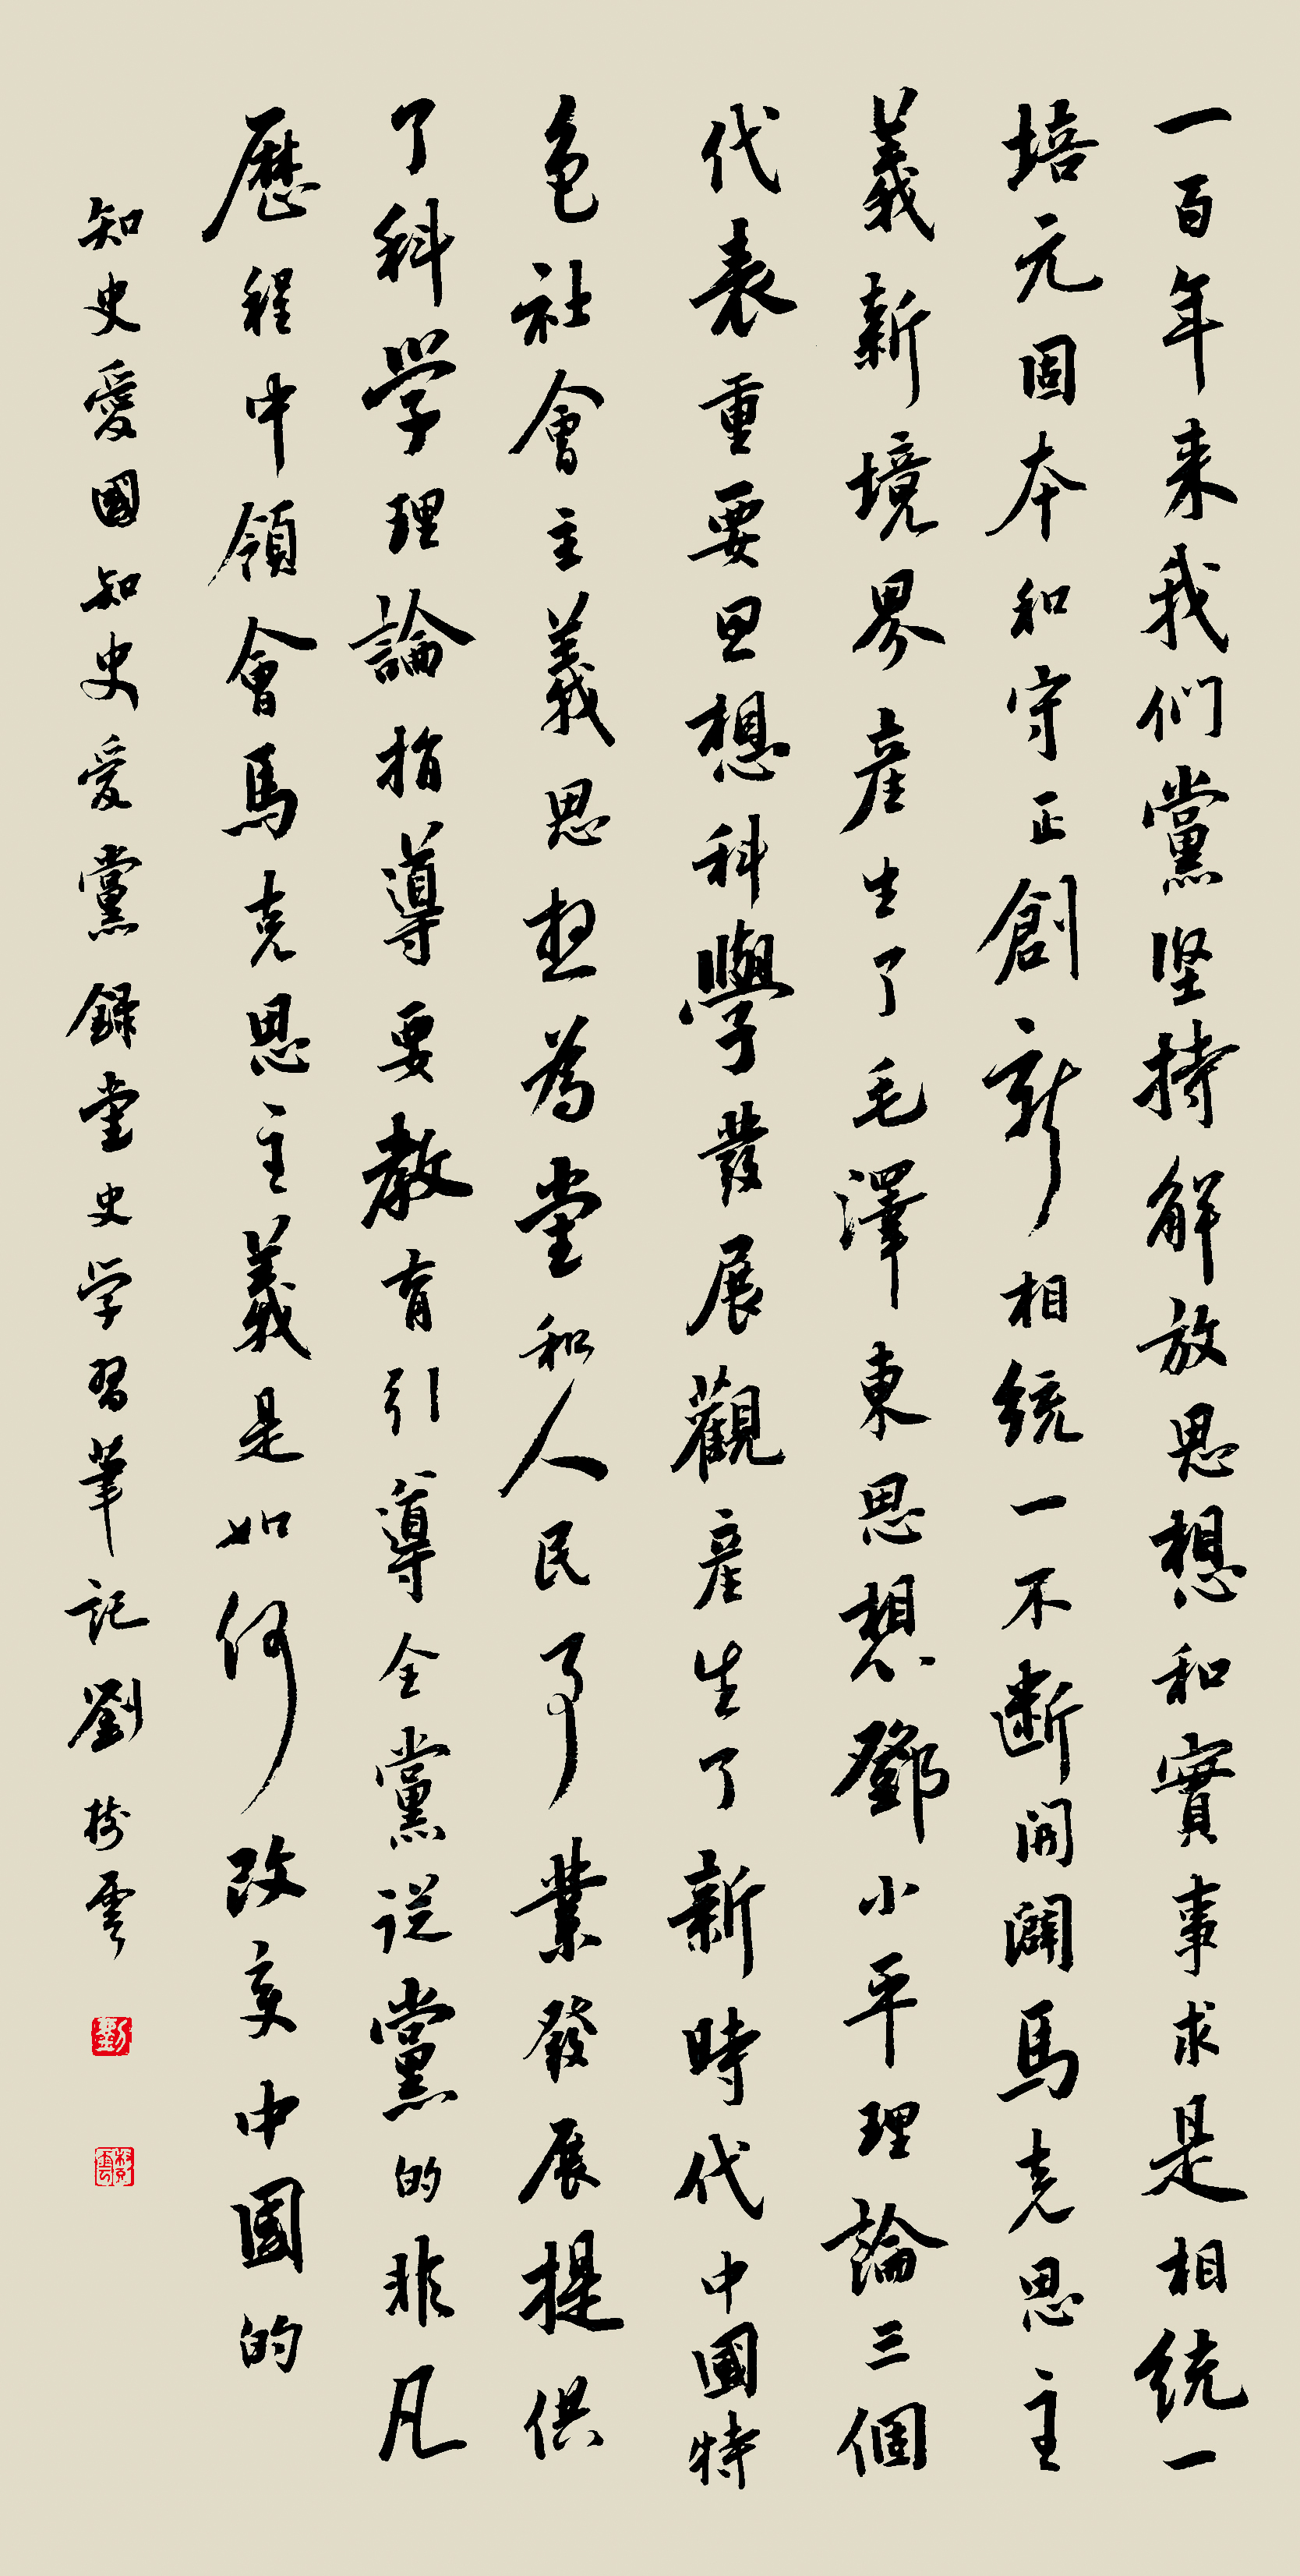 一百年来我们黨坚持解放思想和實事求是相統一
培元固本和守正創新相統一不断開闢馬克思主
義新境界産生了毛澤東思想鄧小平理論三個
代表重要思想科學發展觀産生了新時代中國特
色社會主義思想為党和人民事業發展提供
了科学理論指導要教育引導全黨從黨的非凡
歷程中領會馬克思主義是如何改变中國的
知史愛國知史爱黨錄党史学習筆記劉樹雲
劉
樹雲